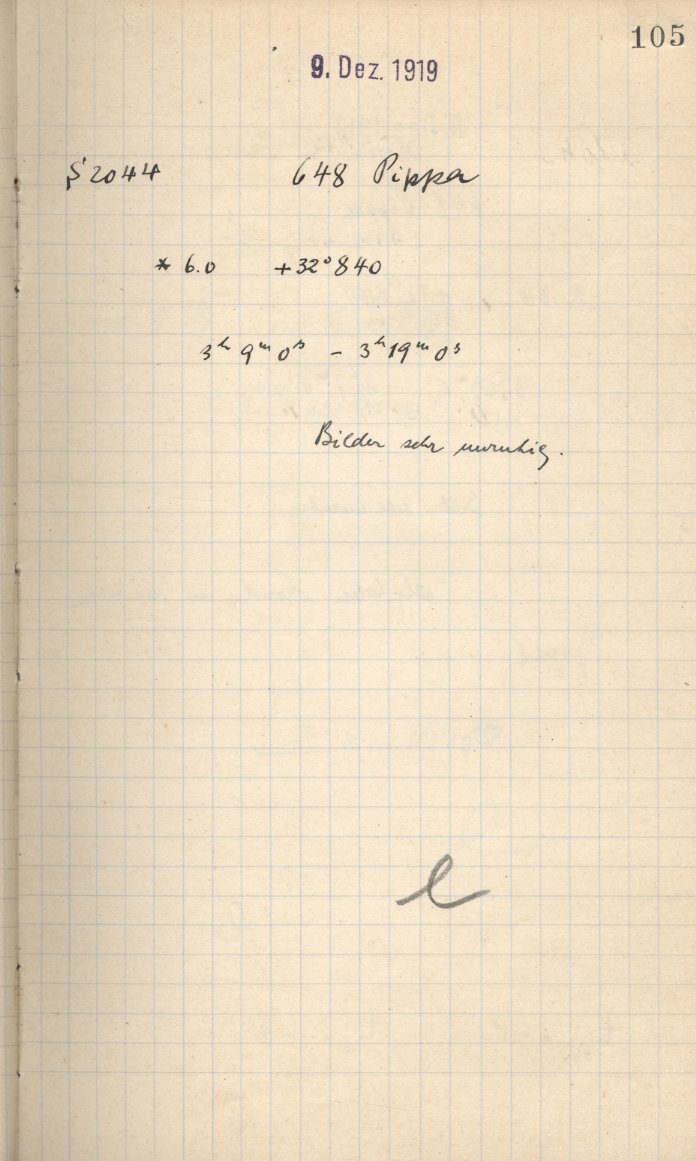 105
9. Dez. 1919
S 2044 648 Pippa
* 6.0 +32°840
3ʰ 9ᵐ 0ˢ – 3ʰ 19ᵐ 0ˢ
Bilder sehr unruhig.